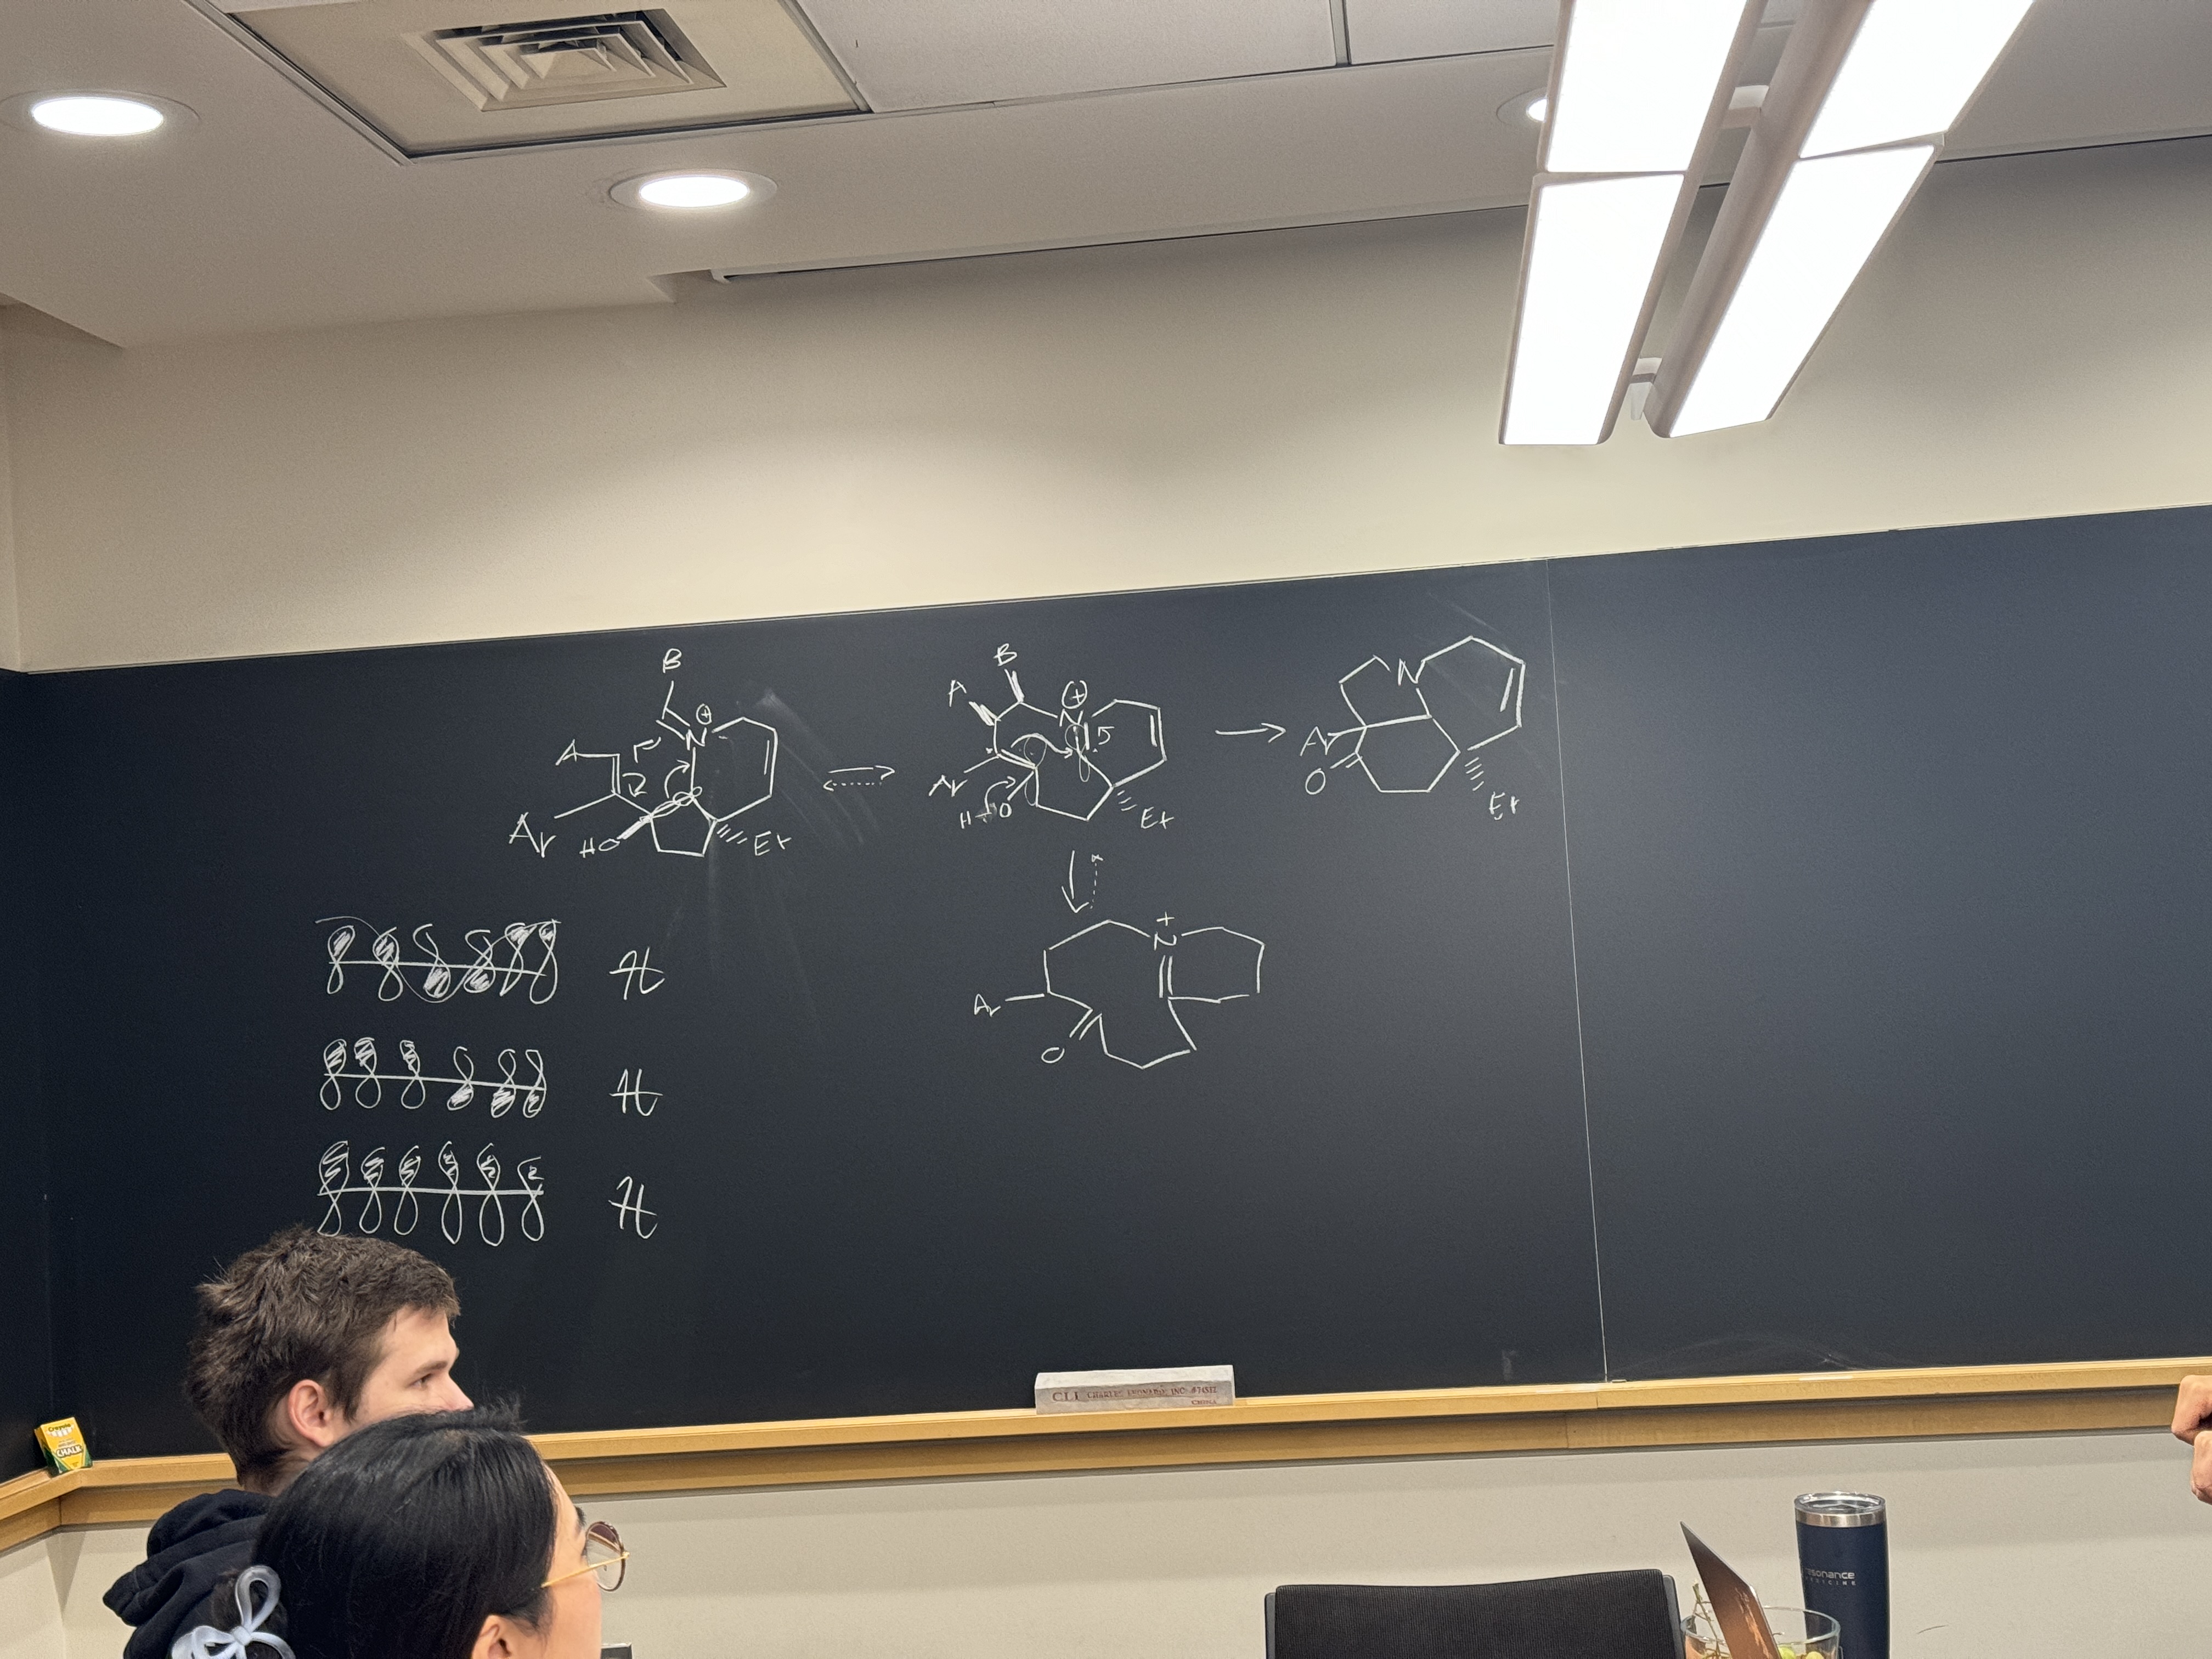 B
A
N
⊕
Ar
HO
Et
B
A
N
⊕
5
Ar
H-O
Et
N
Ar
O
Et
+
N
Ar
O
CLI CHARLES LEONARD INC #74537
CHINA
Crayola
CHALK
resonance
MEDICINE